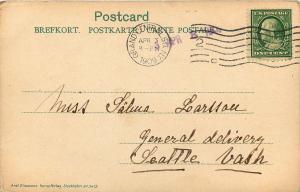 Postcard
BREFKORT. POSTKARTE. CARTE POSTALE.
GRAND CENTRAL STA.
APR 3
1909
Miss Salma Larsson
General delivery
Seattle Wash
Axel Eliassons Konstförlag, Stockholm